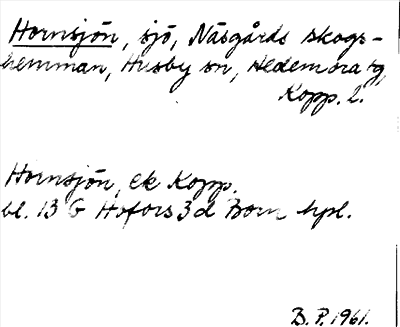 Hornsjön, sjö, Näsgårds skogs-
hemman, Husby sn, Hedemora tg,
Kopp. l.
Hornsjön, ek Kopp.
bl. 13 G Hofors 3d Born hpl.
B. P. 1961.